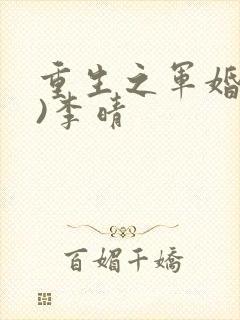 重生之军婚
)李晴
百媚千嬌